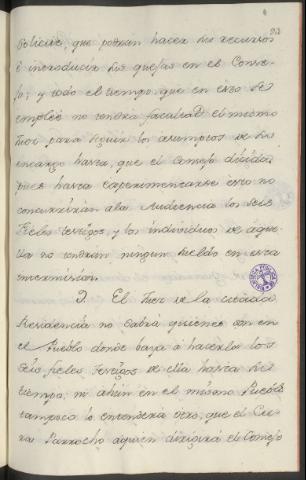 23
solicite, que podran hacer sus recursos
è introducir sus quejas en el Conse-
jo; y todo el tiempo que en esto se
empleè no tendra facultad el mismo
Juez para seguir los asumptos de su
encargo hasta, que el Consejo decida,
pues hasta experimentarse esto no
concurriràn ala Audiencia los seis
Fieles testigos, y los individuos de aque-
lla no tendràn ningun sueldo en esta
intermision.
3. El Juez de la citada
Residencia no sabrà quienes son en
el Pueblo donde vaya à hacerla los
seis fieles Testigos de ella hasta su
tiempo; ni ahun en el mismo Pueblo
tampoco lo entenderà otro, que el Cu-
ra Parrocho aquien dirigirà el Consejo